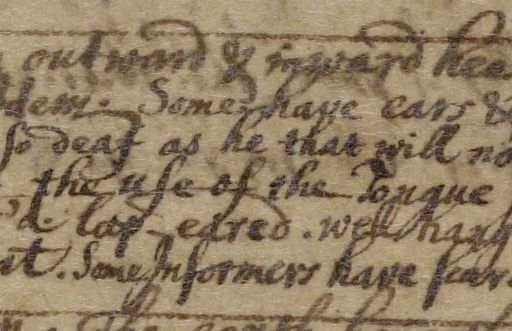 outward & inward hea
them. Some have ears &
so deaf as he that will no
the use of the Tongue
'd lop-eared. well hang
at. Some Informers have fear